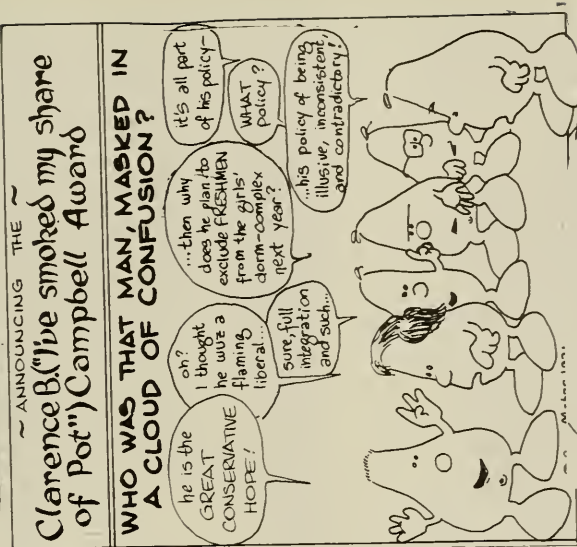 ~ ANNOUNCING THE ~
Clarence B. ("I've smoked my share
of Pot") Campbell Award
WHO WAS THAT MAN, MASKED IN
A CLOUD OF CONFUSION?
he is the
GREAT
CONSERVATIVE
HOPE!
oh?
I thought
he wuz a
flaming
liberal...
sure, full
integration
and such...
...then why
does he plan to
exclude FRESHMEN
from the girls'
dorm-complex
next year?
it's all part
of his policy-
WHAT
policy?
...his policy of being
illusive, inconsistent,
and contradictory!
1971